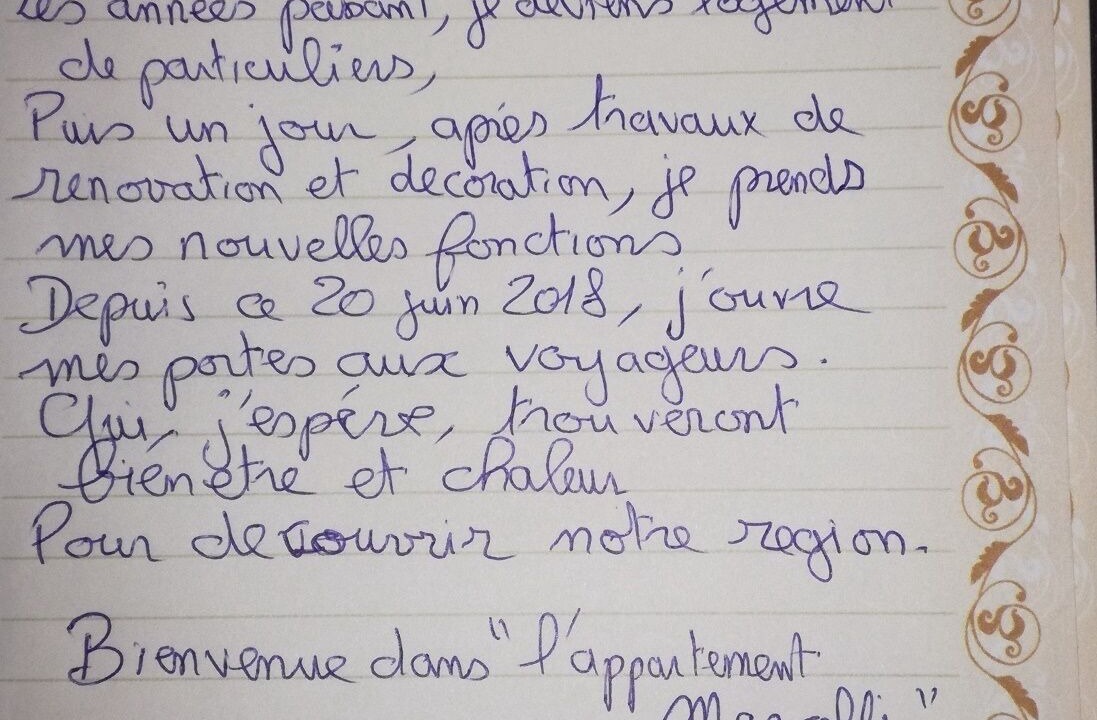 Les années passant, je deviens logement
de particuliers,
Puis un jour, après travaux de
renovation et decoration, je prends
mes nouvelles fonctions
Depuis ce 20 juin 2018, j'ouvre
mes portes aux voyageurs.
Qui, j'espère, trouveront
bien être et chaleur
Pour decouvrir notre region.
Bienvenue dans "l'appartement